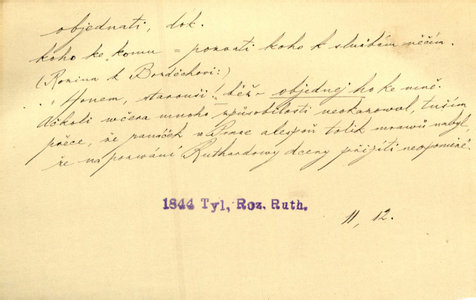 objednati, dok.
koho ke komu = pozvati koho k službám něčím.
(Rozina k Borděchovi:)
. . Honem, starouši! běž – objednej ho ke mně.
Ačkoli včera mnoho způsobilosti neukazoval, tuším
přece, že panáček v Praze alespoň tolik mravů nabyl,
že na pozvání Ruthardovy dcery přijíti neopomine.
1844 Tyl, Roz. Ruth.
11, 12.